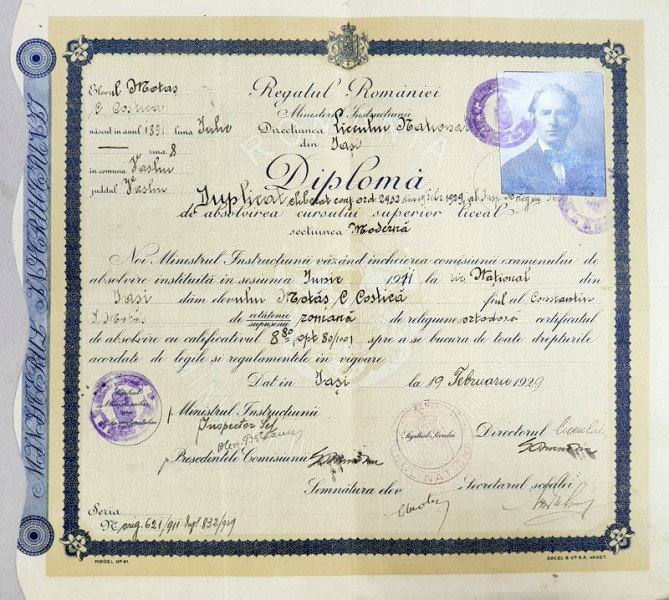 Elevul Motaș
C Costică
născut in anul 1891 luna Iulie
ziua 8
in comuna Vaslui
judetul Vaslui
Regatul României
Ministerul Instrucțiunii
Direcțiunea Liceului Național
din Iași
Diplomă
Duplicat eliberat conf. ord. 2953 din 19 febr 1929 al
de absolvirea cursului superior liceal
secțiunea Modernă
Noi Ministrul Instrucțiunii văzând încheierea comisiunii examenului de
absolvire instituită in sesiunea Iunie 1911 la lic Național din
Iași dăm elevului Motăș C Costică fiul al Constantin
I. Motăș de cetățenie supușenie română de religiune ortodoxă certificatul
de absolvire cu calificativul 8 80 (opt 80/100) spre a se bucura de toate drepturile
acordate de legile și regulamentele in vigoare.
Dat in Iași la 19 Februarie 1929
p Ministrul Instrucțiunii
Inspector Șef
Președintele Comisiunii
Directorul Liceului
Semnătura elev
Secretarul școalei
Sigiliul
Sigiliul Școalei
Seria
N orig. 621/911 Dupl 832/929
MODEL No 61.
SOCEC & Co S.A.
MINISTERUL INSTRUCȚIUNII